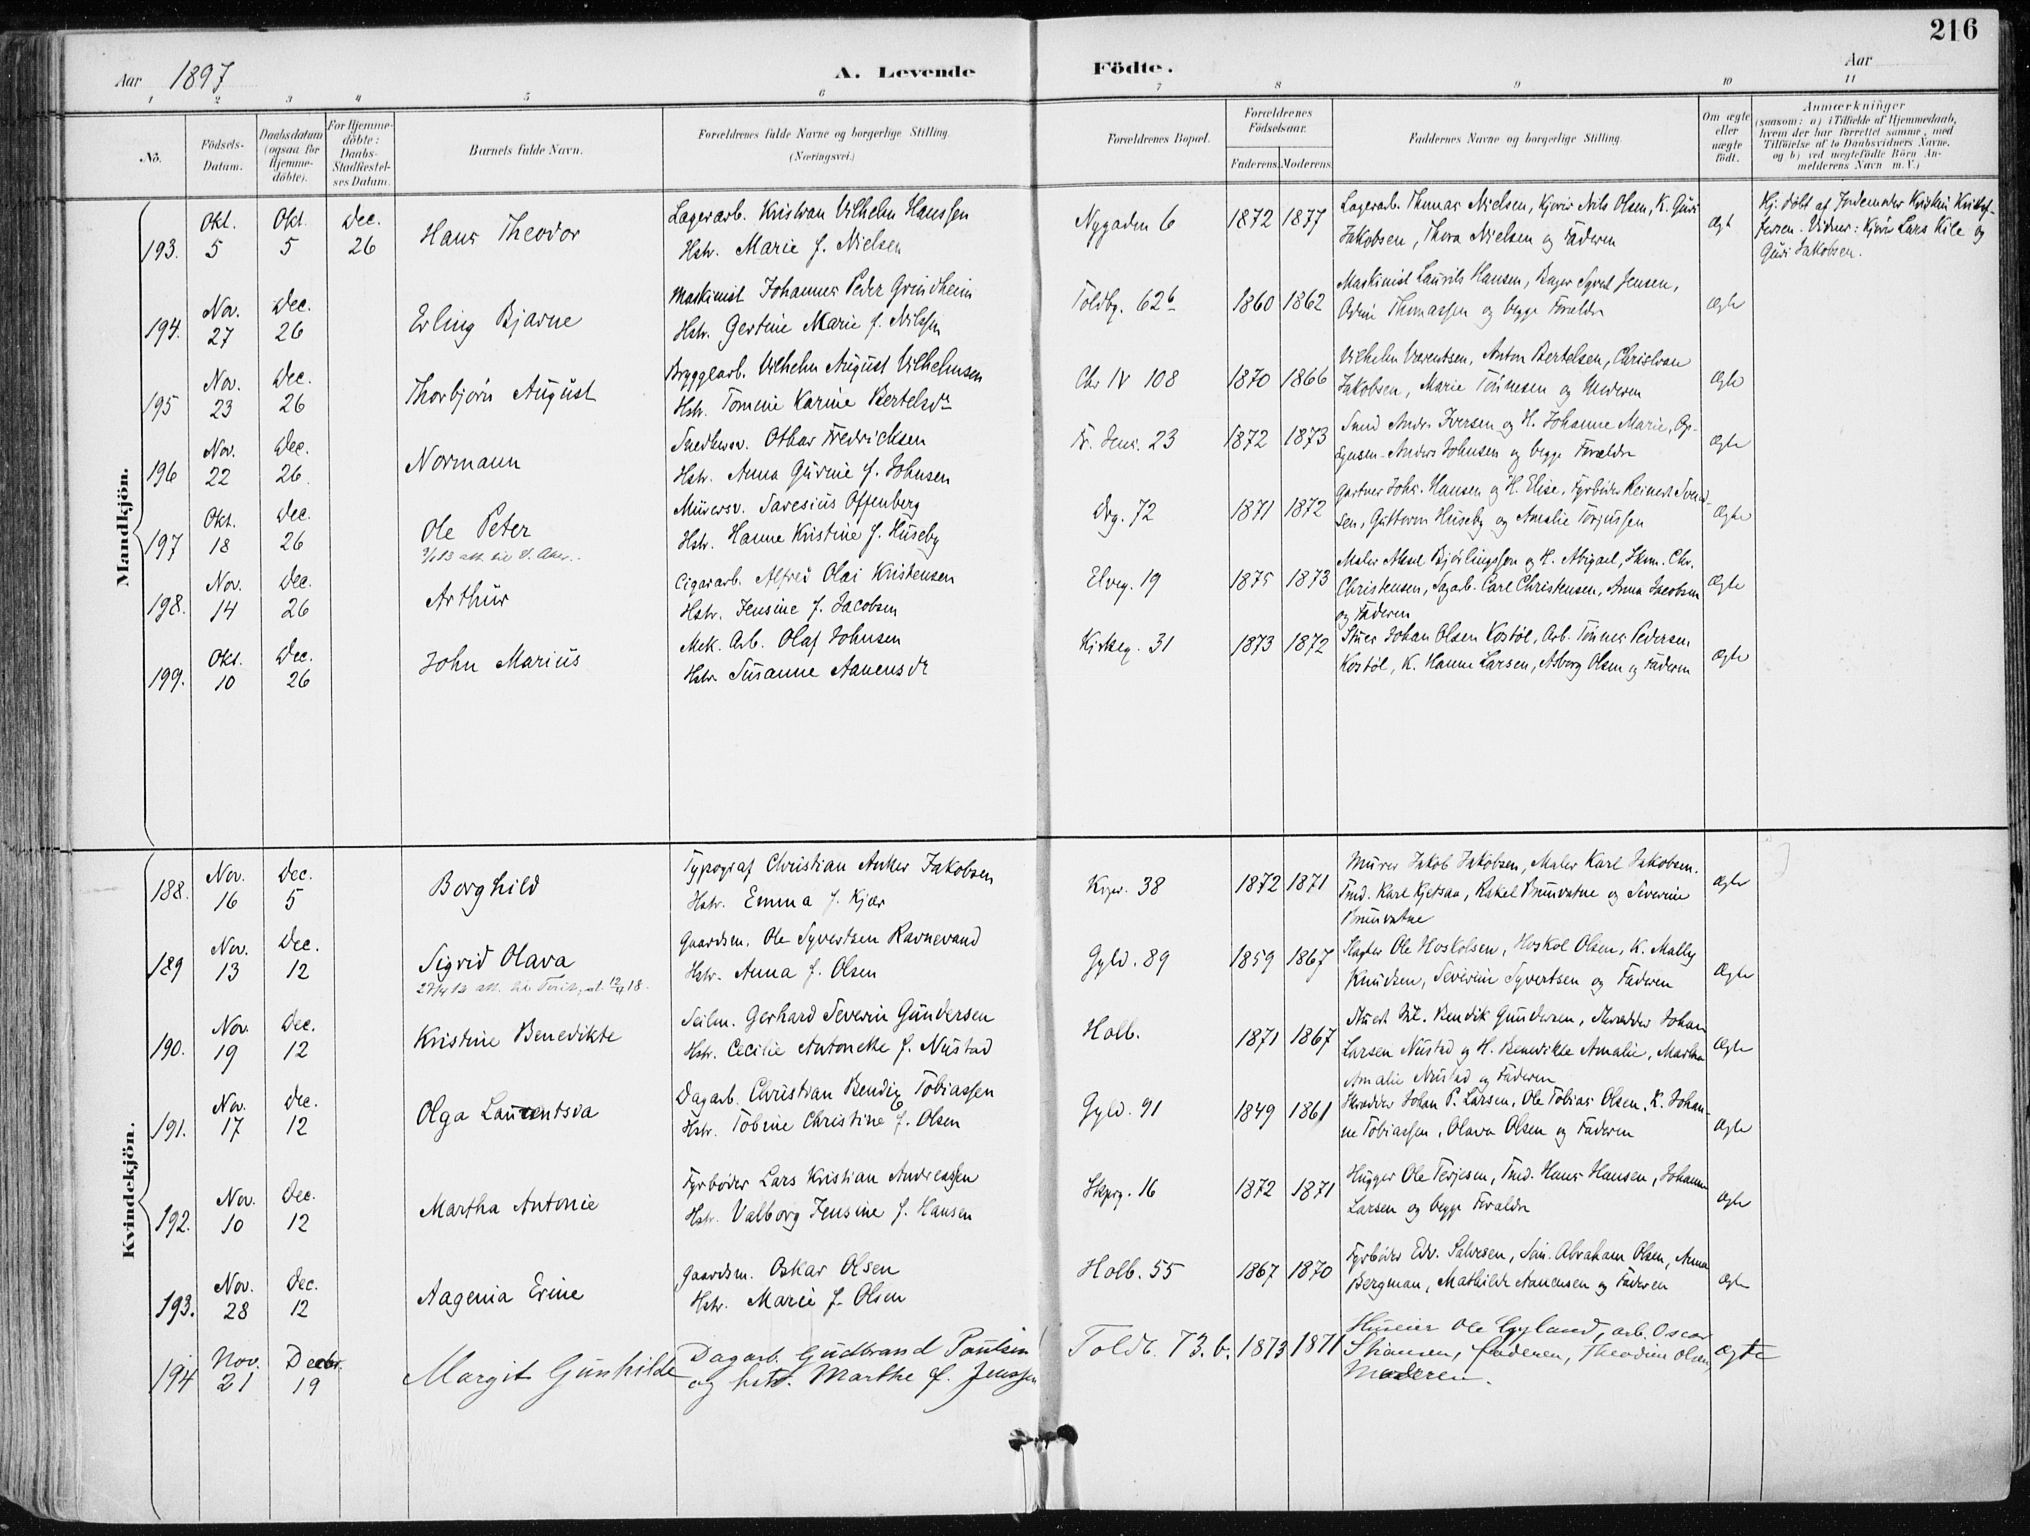 216
Aar 1897 A. Levende Födte. Aar
1 2 3 4 5 6 7 8 9 10 11
No. Födsels-Datum. Daabsdatum (ogsaa for Hjemme-döbte). For Hjemme-döbte: Daabs-Stadfæstel-ses Datum. Barnets fulde Navn. Forældrenes fulde Navne og borgerlige Stilling. (Næringsvei.) Forældrenes Bopæl. Forældrenes Födselsaar. Faderens. Moderens. Faddernes Navne og borgerlige Stilling. Om ægte eller uægte födt. Anmærkninger (saasom: a) i Tilfælde af Hjemmedaab, hvem der har forrettet samme, med Tilföielse af to Daabsvidners Navne. og b) ved uægtefödte Börn An-melderens Navn m. V.)
Mandkjön.
193. Okt. 5 Okt. 5 Dec. 26 Hans Theodor
Lagerarb. Kristian Vilhelm Hanssen
Hstr. Marie f. Nielsen
Nygaden 6 1872 1877
Lagerarb. Thomas Nielsen, Kjører Nils Olsen, K. Guri
Jakobsen, Thora Nielsen og Faderen
ægte
Hj. døbt af Jordemoder Kristine Kristof-
fersen. Vidner: Kjører Lars Kile og
Guri Jakobsen.
194. Nov. 27 Dec. 26 Erling Bjarne
Maskinist Johannes Peder Grindheim
Hstr. Gertine Marie f. Nilssen
Toldbg. 62b 1860 1862
Maskinist Laurits Hansen, Bager Syvert Jensen,
Thomassen og begge Forældre
ægte
195 Nov. 23 Dec. 26 Thorbjørn August
Bryggearb. Vilhelm August Vilhelmsen
Hstr. Tomine Karine Bertelsdr
Chr IV 108 1870 1866
Vilhelm Berentsen, Anton Bertelsen, Christian
Jakobsen, Marie Tønnesen og Moderen
ægte
196 Nov. 22 Dec. 26 Normann
Smedkersv. Othar Fredricksen
Hstr. Anna Gurine f. Johnsen
Fr. Jens. 23 1872 1873
Smed Andr. Iversen og H. Johanne Marie,
Anders Johnsen og begge Forældre
ægte
197 Okt. 18 Dec. 26 Ole Peter
Murersv. Saresius Offenberg
Hstr. Hanne Kristine f. Huseby
Drg. 72 1871 1872
Gartner Johs. Hansen og H. Elise, Fyrbøder Reinert Svend-
sen, Guttorm Huseby og Amalie Torjussen
ægte
198. Nov. 14 Dec. 26 Arthur
Cigararb. Alfred Olai Kristensen
Hstr. Jensine f. Jacobsen
Elveg. 19 1875 1873
Maler Aksel Bjørlingssen og H. Abigael, Skm. Chr.
Christensen, Sagarb. Carl Christensen, Anna Jacobsen
og Faderen
ægte
199. Okt. 10 Dec. 26 John Marius
Mek. Arb. Olaf Johnsen
Hstr. Susanne Aanensdr
Kirkeg. 31 1873 1872
Stuer Johan Olsen Kostøl, Arb. Tønnes Pedersen
Kostøl, K. Hanne Larsen, Asborg Olsen og Faderen
ægte
Kvindekjön.
188. Nov. 16 Dec. 5 Borghild
Typograf Christian Anker Jakobsen
Hstr. Emma f. Kjær
Kr. 38 1872 1871
Murer Jakob Jakobsen, Maler Karl Jakobsen.
Tmd. Karl Kjetsaa, Rakel Bruvatne og Severine
Bruvatne
ægte
189 Nov. 13 Dec. 12 Sigrid Olava
Gaardsm. Ole Syvertsen Ravnevand
Hstr. Anna f. Olsen
Gyld. 89 1859 1867
Slagter Ole Hoskolsen, Hoskol Olsen, K. Mally
Knudsen, Severine Syvertsen og Faderen
ægte
190. Nov. 19 Dec. 12 Kristine Benedikte
Seilm. Gerhard Severin Gundersen
Hstr. Cecilie Antonette f. Nustad
Holb. 1871 1867
Bendik Gundersen, Skrædder Johan
Larsen Nustad og H. Benedikte Amalie, Martha
Amalie Nustad og Faderen
ægte
191. Nov. 17 Dec. 12 Olga Laurentsia
Dagarb. Christian Bendix Tobiassen
Hstr. Tobine Christine f. Olsen
Gyld. 91 1849 1861
Skrædder Johan P. Larsen, Ole Tobias Olsen, K. Johan-
ne Tobiassen, Olava Olsen og Faderen
ægte
192. Nov. 10 Dec. 12 Martha Antonie
Fyrbøder Lars Kristian Andreassen
Hstr. Valborg Jensine f. Hansen
Skprg. 16 1872 1871
Hugger Ole Terjesen, Tmd. Hans Hansen, Johanne
Larsen og begge Forældre
ægte
193. Nov. 28 Dec. 12 Aagenia Erine
Gaardsm. Oskar Olsen
Hstr. Marie f. Olsen
Holb. 55 1867 1870
Fyrbøder Edv. Salvesen, Abraham Olsen, Anna
Bergman, Mathilde Aanensen og Faderen
ægte
194 Nov. 21 Decbr. 19 Margit Gunhilde
Dagarb. Gudbrand Paulsen
og hstr. Marthe f. Jenssen
Toldb. 73.b. 1873 1871
Huseier Ole Gyland, arb. Oscar
Skansen, faderen, Theodine Olsen,
Moderen.
ægte